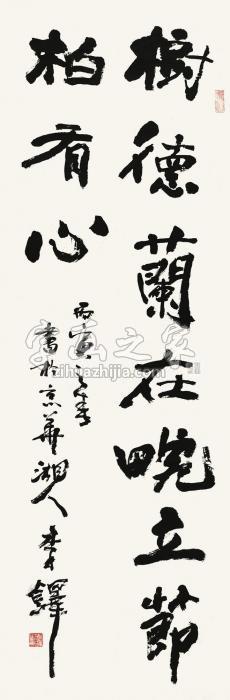 树德蘭在畹立節
柏有心
丙寅之年
書於京華湘人李鐸
字画之家
zihuazhijia.com